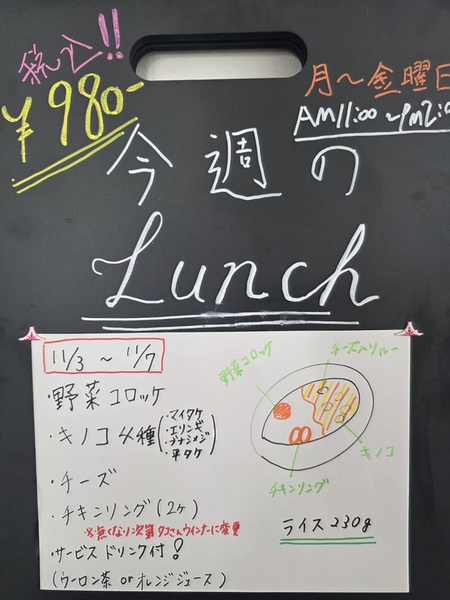 税込!!
¥980-
月〜金曜日
AM11:00〜PM2:0
今週の
Lunch
11/3 〜 11/7
・野菜コロッケ
・キノコ4種
・マイタケ
・エリンギ
・ブナシメジ
・平タケ
・チーズ
・チキンリング(2ヶ)
※無くなり次第タコさんウインナーに変更
・サービスドリンク付!
(ウーロン茶 or オレンジジュース)
野菜コロッケ
チーズ入りルー
キノコ
チキンリング
ライス230g